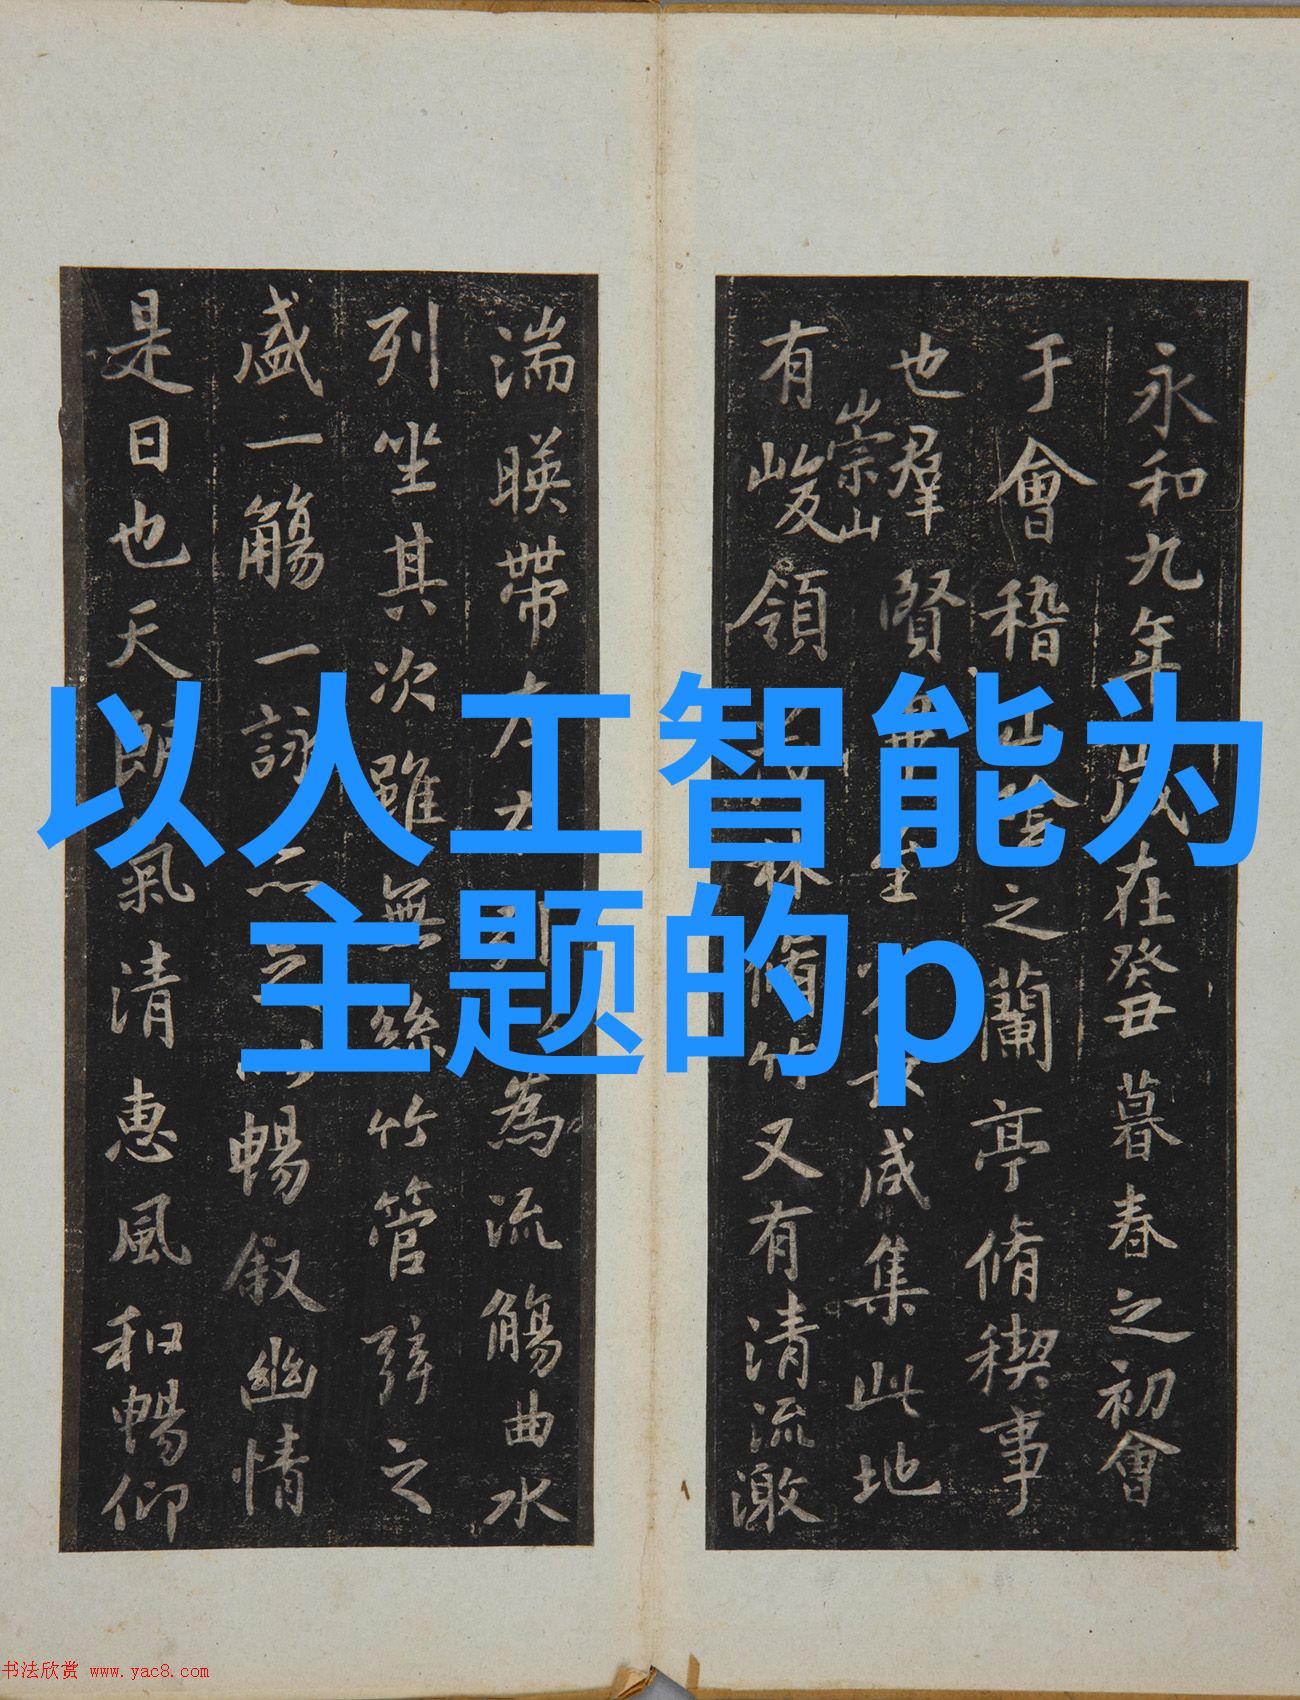 以人工智能为
主题的p
永和九年歲在癸丑暮春之初會
于會稽山陰之蘭亭脩稧事
也羣賢畢至少長咸集此地
有崇山峻領茂林脩竹又有清流激
湍暎帶左右引以為流觴曲水
列坐其次雖無絲竹管弦之
盛一觴一詠亦足以暢叙幽情
是日也天朗氣清惠風和暢仰
书法欣赏 www.yac8.com